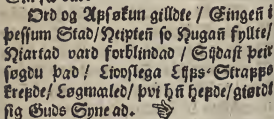 Ord og Apsøkun gilldte / Eingeñ i
þessum Stad / Neipteñ so Hugañ fyllte /
Hiartad vard forblindad / Sijdast þeir
søgdu þad / Liooslega Lijfs-Strapps
krefde / Løgmæled / þvi hñ hefde / giørdt
sig Guds Syne ad.